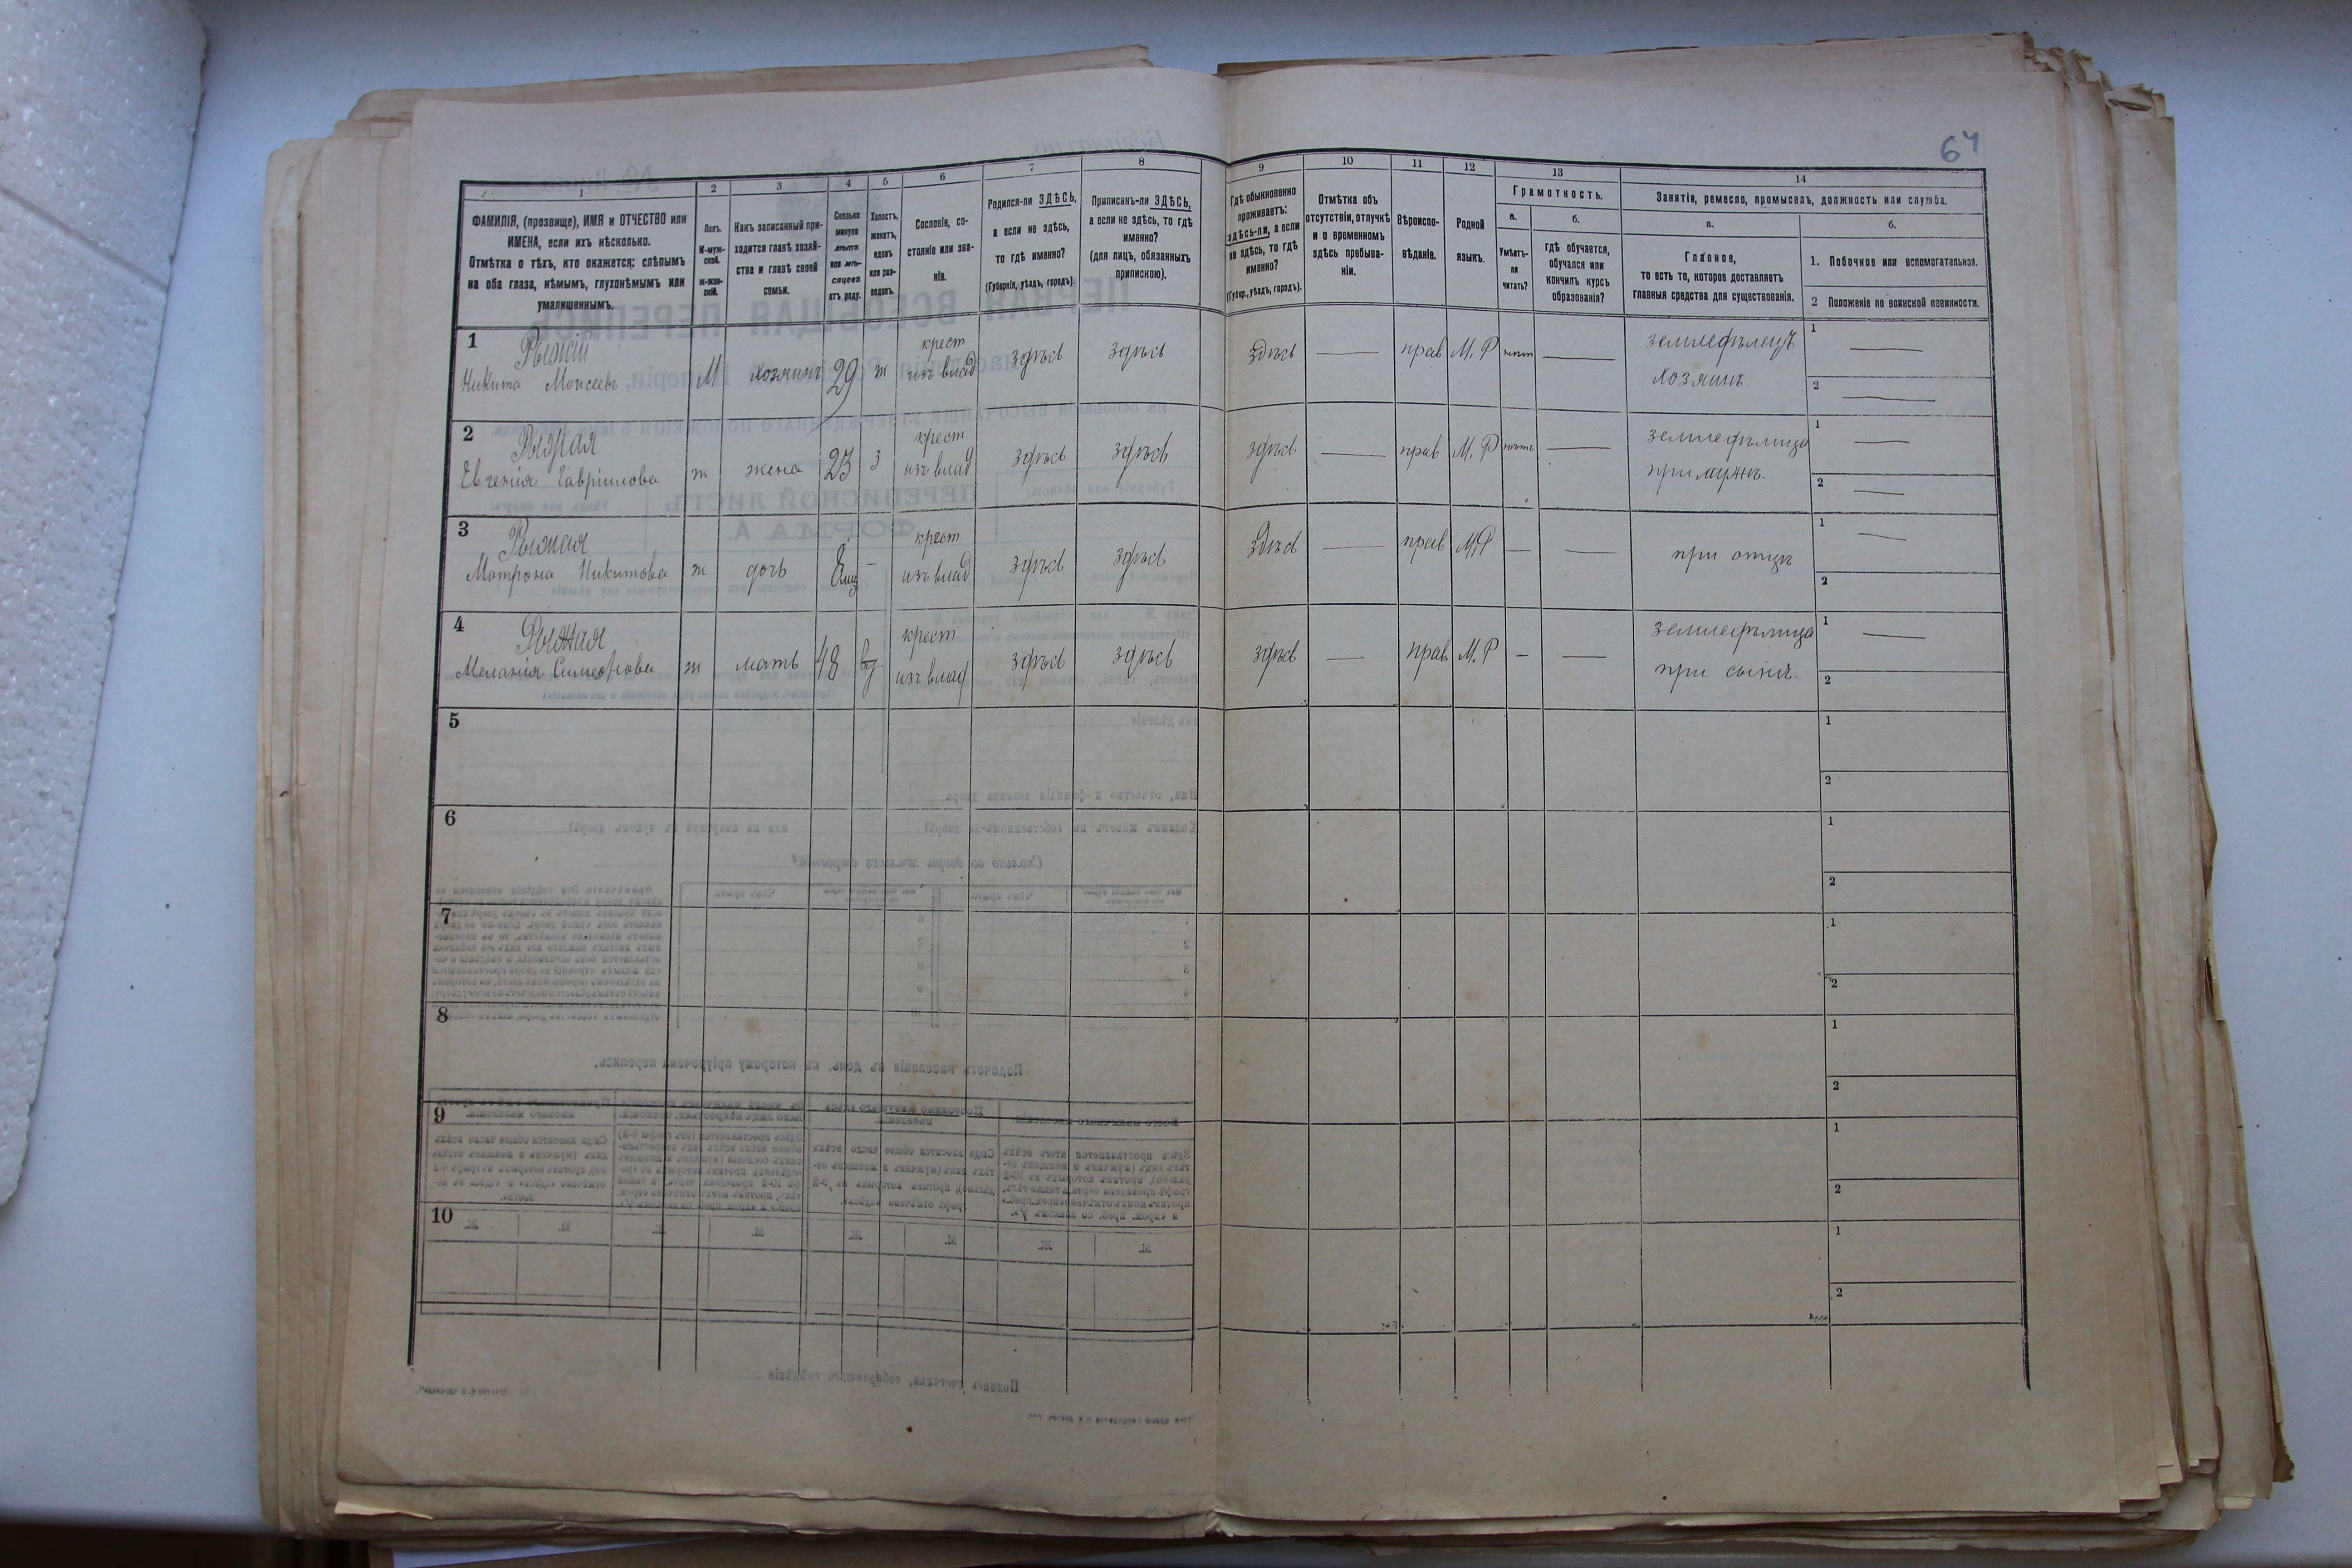 64
1 2 3 4 5 6 7 8 9 10 11 12 13 14
ФАМИЛІЯ, (прозвище), ИМЯ и ОТЧЕСТВО или
ИМЕНА, если ихъ нѣсколько.
Отмѣтка о тѣхъ, кто окажется: слѣпымъ
на оба глаза, нѣмымъ, глухонѣмымъ или
умалишеннымъ.
Полъ.
М-муж-
ской.
Ж-жен-
скій.
Какъ записанный при-
ходится главѣ хозяй-
ства и главѣ своей
семьи.
Сколько
минуло
лѣтъ
или мѣ-
сяцевъ
отъ роду.
Холостъ,
женатъ,
вдовъ
или раз-
веденъ.
Сословіе, со-
стояніе или зва-
ніе.
Родился-ли ЗДѢСЬ,
а если не здѣсь,
то гдѣ именно?
(Губернія, уѣздъ, городъ).
Приписанъ-ли ЗДѢСЬ,
а если не здѣсь, то гдѣ
именно?
(для лицъ, обязанныхъ
припискою).
Гдѣ обыкновенно
проживаетъ:
здѣсь-ли, а если
не здѣсь, то гдѣ
именно?
(Губер., уѣздъ, городъ).
Отмѣтка объ
отсутствіи, отлучкѣ
и о временномъ
здѣсь пребыва-
ніи.
Вѣроиспо-
вѣданіе.
Родной
языкъ.
Грамотность.
а.
Умѣетъ-
ли
читать?
б.
гдѣ обучается,
обучался или
кончилъ курсъ
образованія?
Занятіе, ремесло, промыселъ, должность или служба.
а.
Главное,
то есть то, которое доставляетъ
главныя средства для существованія.
б.
1. Побочное или вспомогательное.
2 Положеніе по воинской повинности.
1 Рыжій крест земледѣлецъ 1
Никита Моисеевъ М хозяинъ 29 ж изъ влад здѣсь здѣсь здѣсь — прав М. Р нѣтъ — хозяинъ. 2
2 Рыжая крест земледѣлица 1
Евгенія Гавріилова ж жена 23 з изъ влад здѣсь здѣсь здѣсь — прав М. Р нѣтъ — при мужѣ. 2
3 Рыжая крест 1
Матрона Никитова ж дочь 8 мц — изъ влад здѣсь здѣсь здѣсь — прав М.Р — — при отцѣ 2
4 Рыжая крест земледѣлица 1
Меланія Симеонова ж мать 48 вд изъ влад здѣсь здѣсь здѣсь — прав. М. Р — — при сынѣ. 2
5 1
2
6 1
2
7 1
2
8 1
2
9 1
2
10 1
2